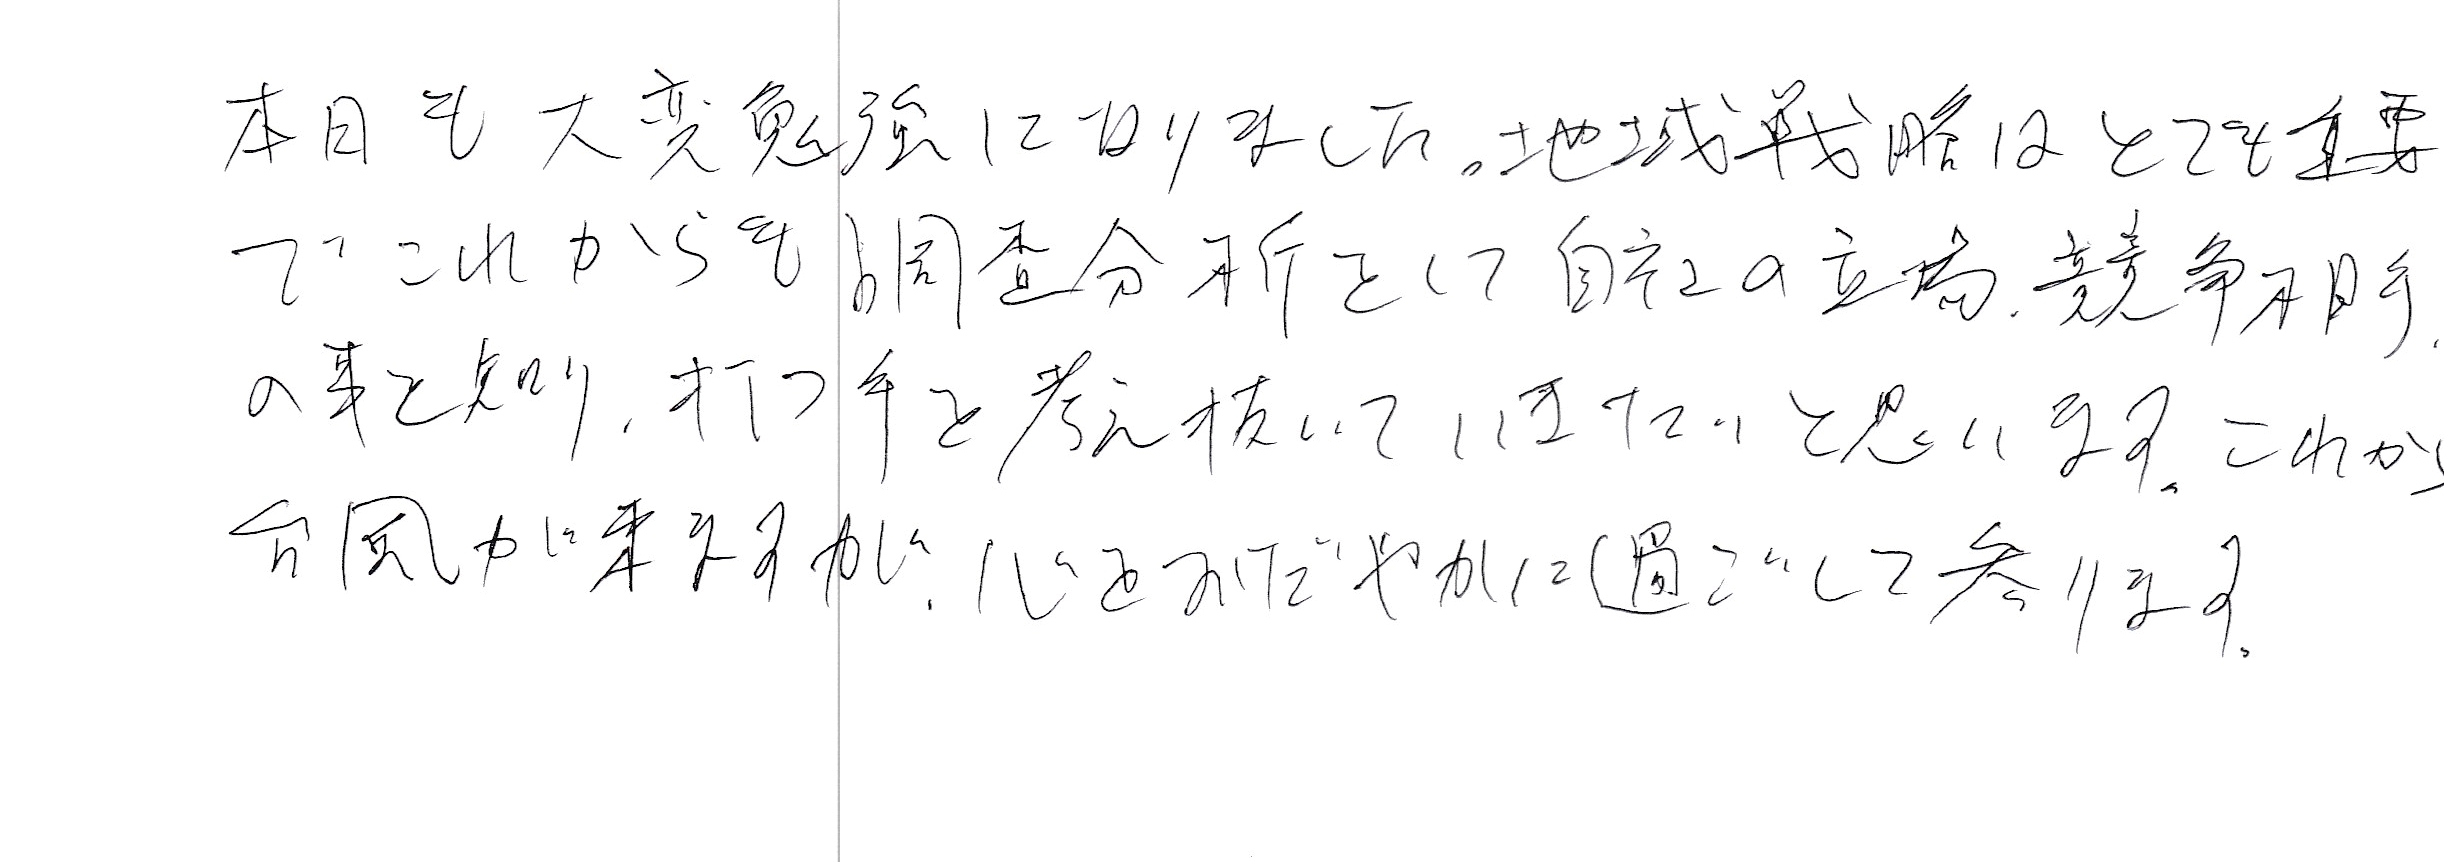 本日も大変勉強になりました。地域戦略はとても重要
でこれからも調査分析をして自社の立場、競争相手、
の事を知り、打つ手を考え抜いていきたいと思います。これから
台風が来ますが、心をおだやかに過ごして参ります。